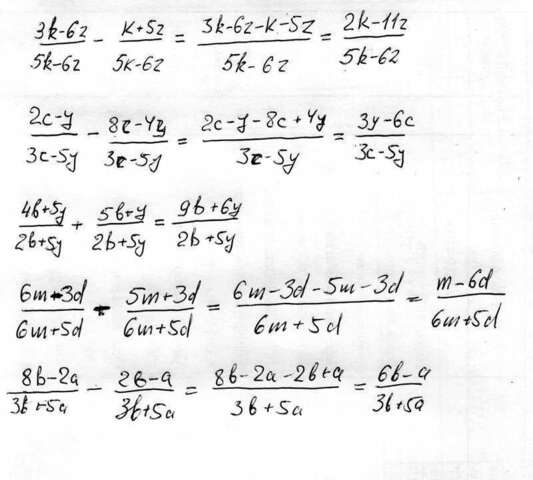 (3k-6z)/(5k-6z) - (k+5z)/(5k-6z) = (3k-6z-k-5z)/(5k-6z) = (2k-11z)/(5k-6z)
(2c-y)/(3c-5y) - (8c-4y)/(3c-5y) = (2c-y-8c+4y)/(3c-5y) = (3y-6c)/(3c-5y)
(4b+5y)/(2b+5y) + (5b+y)/(2b+5y) = (9b+6y)/(2b+5y)
(6m-3d)/(6m+5d) - (5m+3d)/(6m+5d) = (6m-3d-5m-3d)/(6m+5d) = (m-6d)/(6m+5d)
(8b-2a)/(3b+5a) - (2b-a)/(3b+5a) = (8b-2a-2b+a)/(3b+5a) = (6b-a)/(3b+5a)